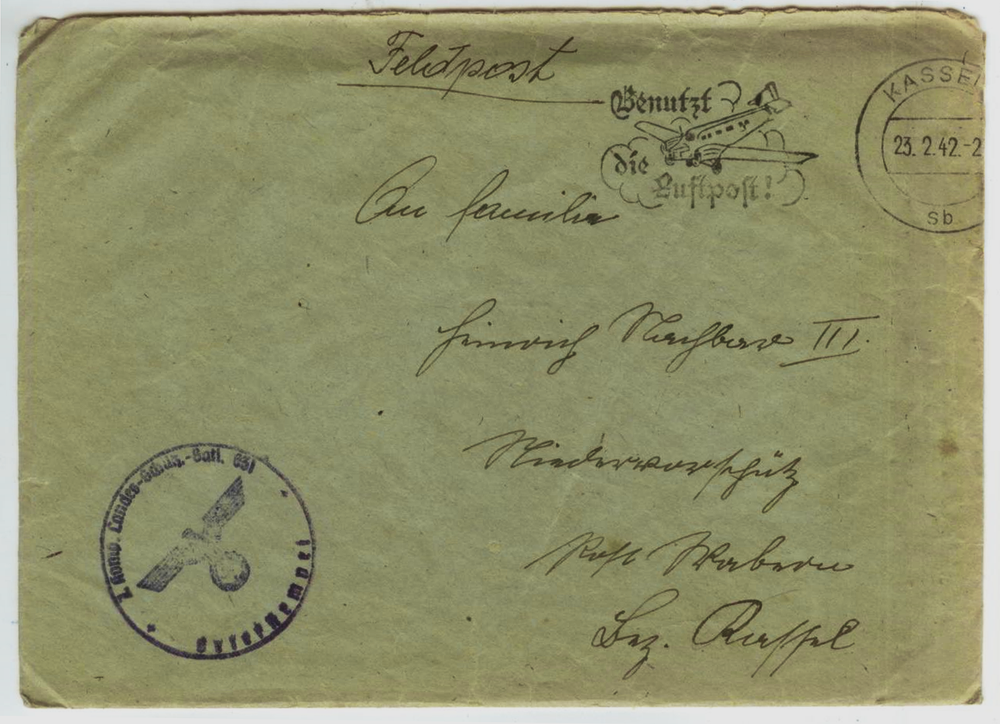 Feldpost
Benutzt
die
Luftpost!
KASSEL
23.2.42.-2
sb
An Familie
Heinrich Nachbar III.
Niedervorschütz
Post Wabern
Bez. Kassel
Komp. Landes-Schütz.-Batl. 631
Briefstempel